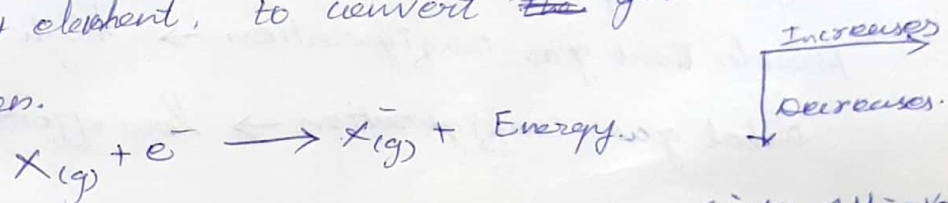 element, to convert the
Increases
Decreases.
X(g) + e⁻ ⟶ X⁻(g) + Energy.